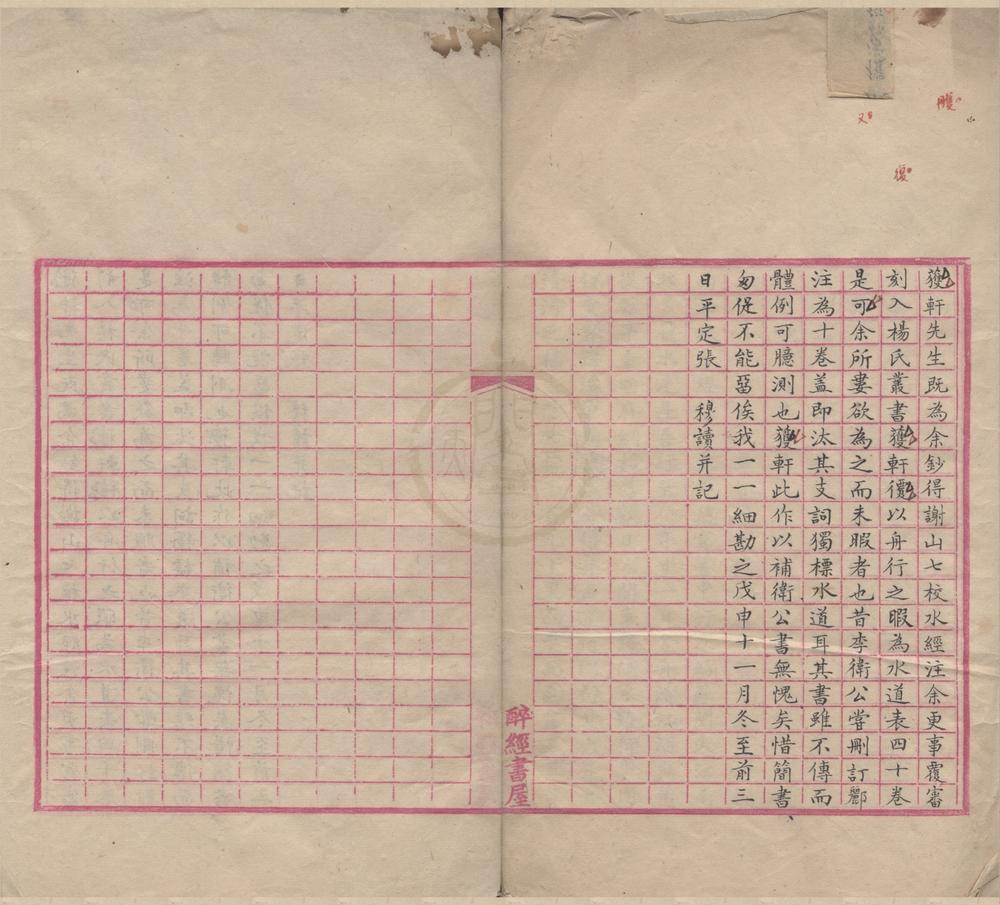 獲軒先生既為余鈔得謝山七校水經注余更事覆審
刻入楊氏叢書獲軒復以舟行之暇為水道表四十卷
是可余所婁欲為之而未暇者也昔李衛公嘗刪訂酈
注為十卷盖即汰其支詞獨標水道耳其書雖不傳而
體例可臆測也獲軒此作以補衛公書無愧矣惜簡書
匆促不能畱俟我一一細勘之戊申十一月冬至前三
日平定張 穆讀并記
醉經書屋
復
又